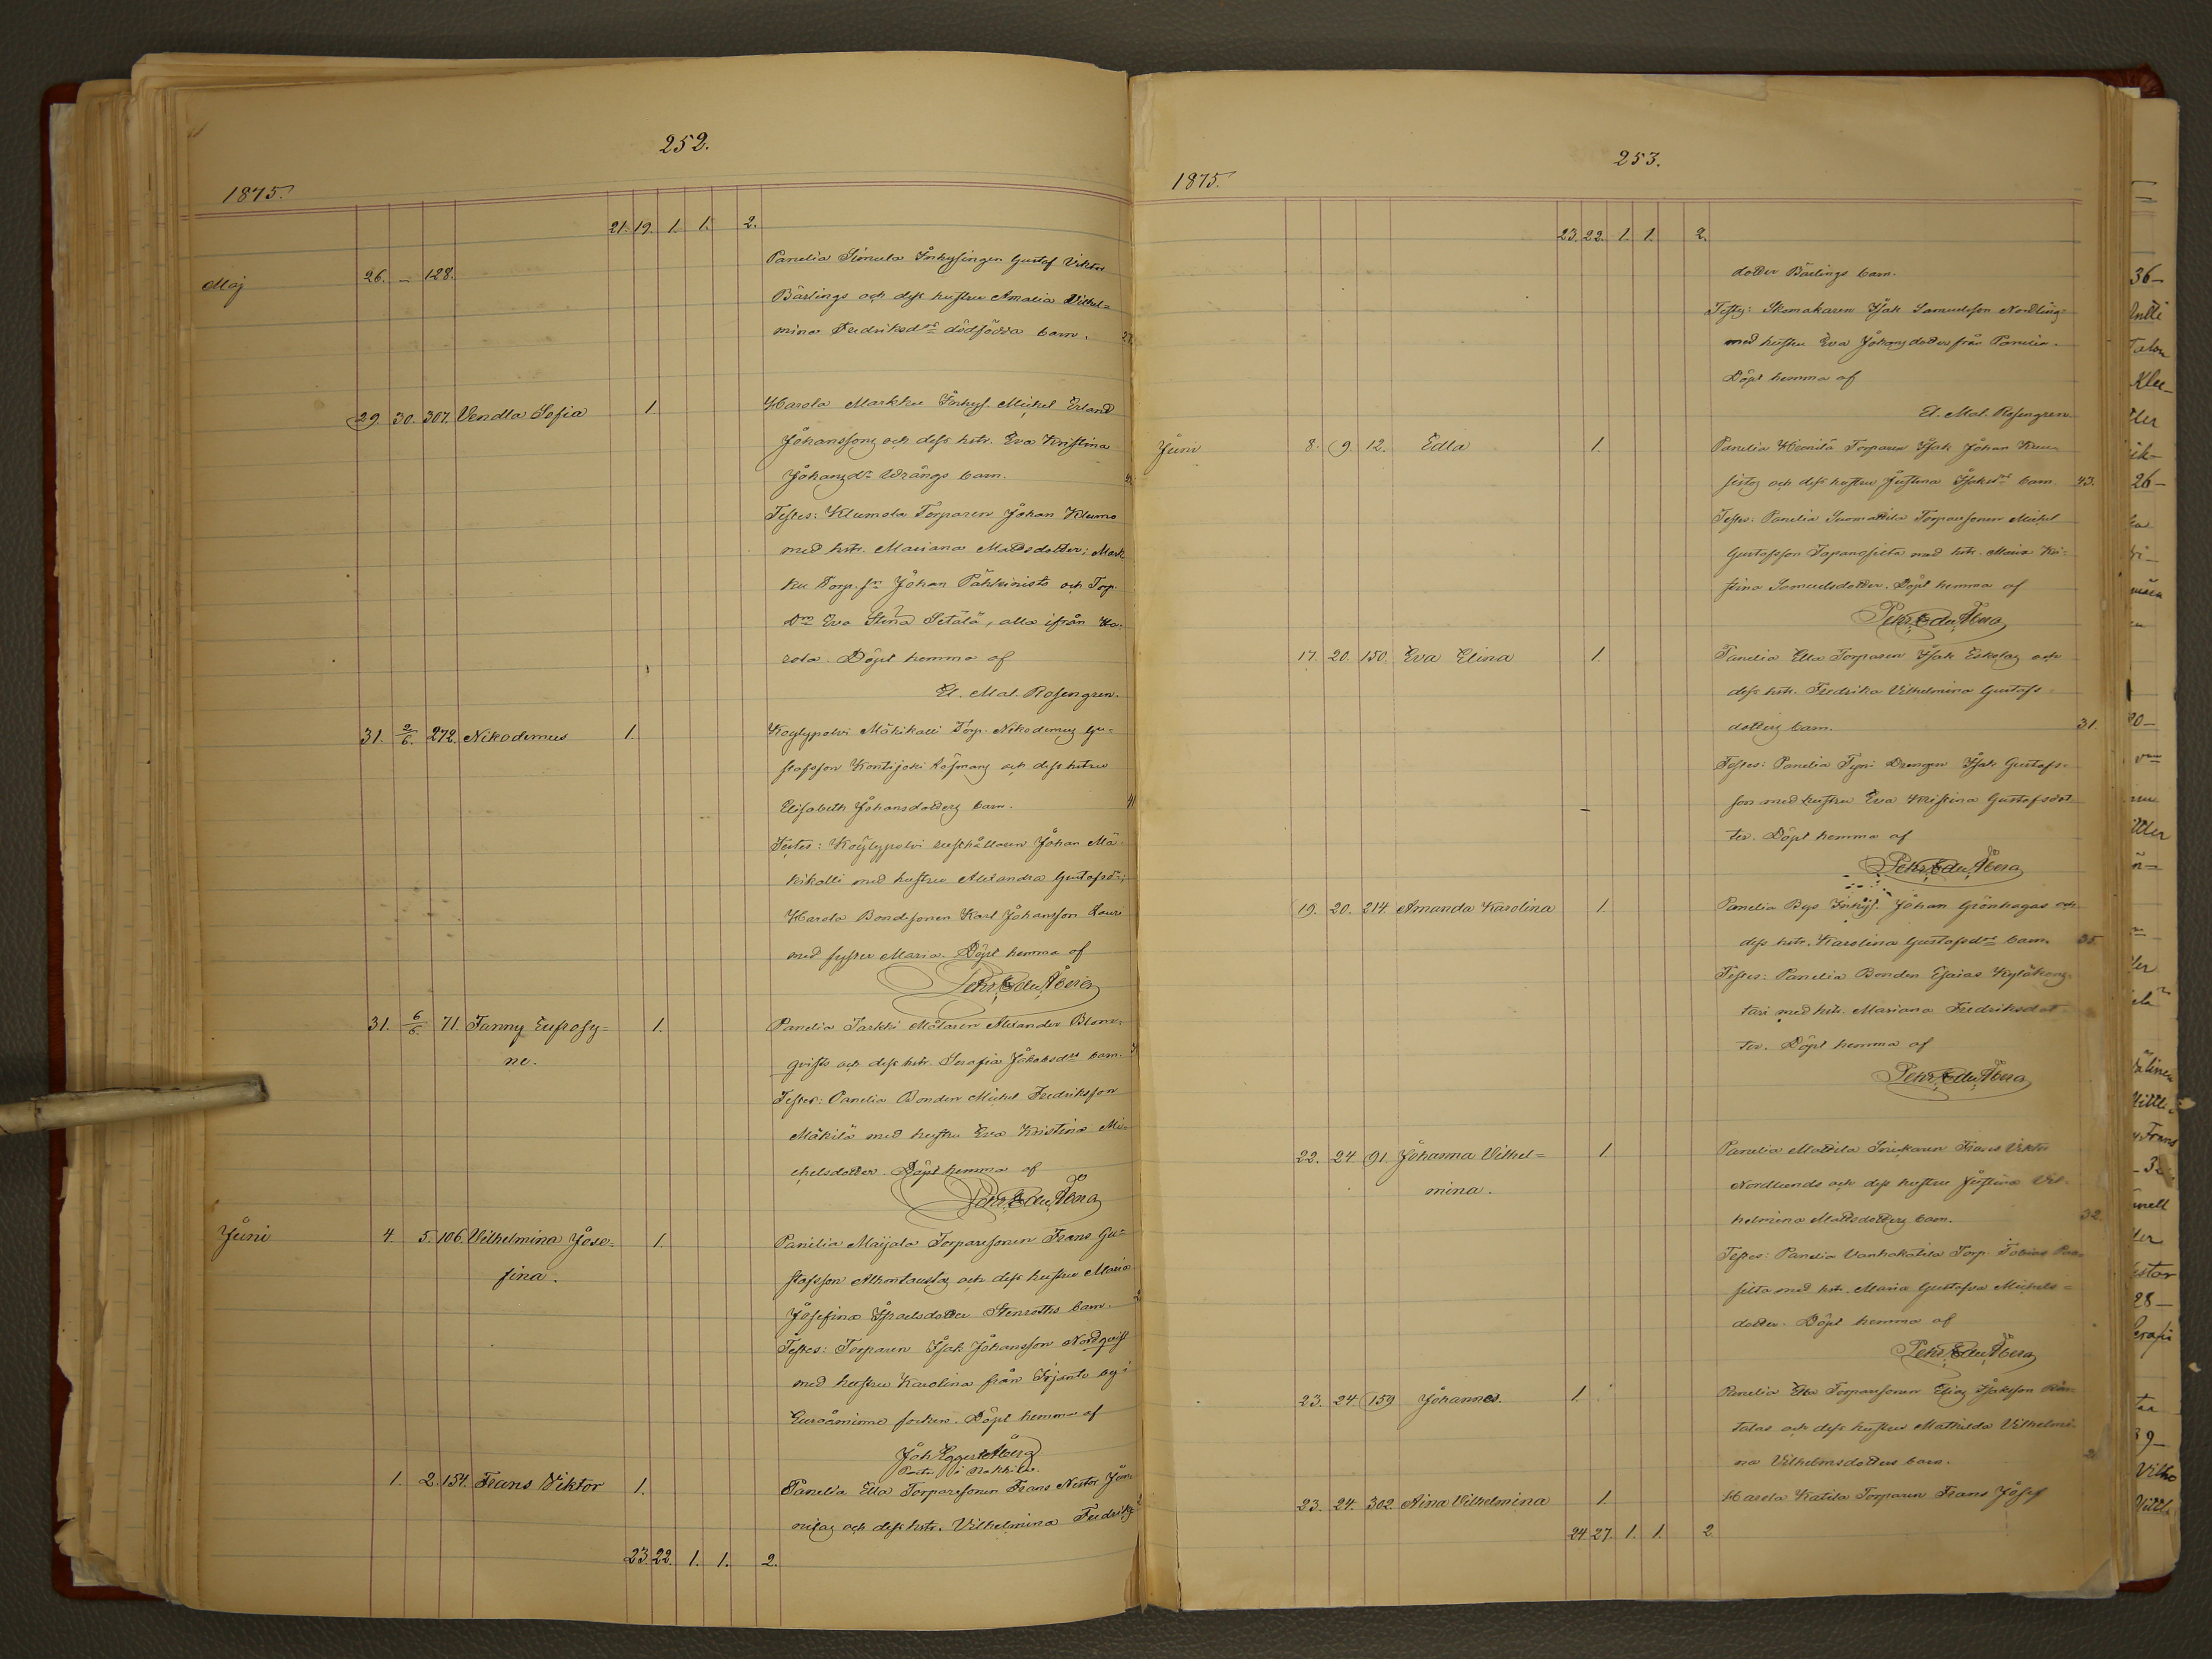 252.
1875.
21. 19. 1. 1. 2.
Maj 26. — 128. Panelia Inhysingen Gustaf Viktor
Bärlings och dess hustru Amalia Vilhel=
mina Fredriksdrs dödfödda barn.
29. 30. 307. Vendla Sofia 1. Harola Markku Inhys. Mickel Erland
Johanssons och dess hstr. Eva Kristina
Johansdr Wrångs barn.
Testes: Klumola Torparen Johan Klumo
med hstr. Mariana Mattsdotter; Mark
ku Torp. sn Johan Pähkinistö och Torp.
Drn Eva Stina Setälä, alla ifrån Ha=
rola. Döpt hemma af
El. Mal. Rosengren.
31. 2/6. 272. Nikodemus 1. Köylypolvi Mäkikalli Torp. Nikodemus Gu=
stafsson Kontijoki och dess hstru
Elisabeth Johansdotters barn. 41
Testes: Köylypolvi rusthållaren Johan Mä=
kikalli med hustru Alexandra Gustafsdr;
Harola Bondesonen Karl Johansson Lauri
med syster Maria. Döpt hemma af
Petr. Edu. Åberg
31. 6/6. 71. Fanny Eufrosy= 1. Panelia Jarkki Målaren Alexander Blom=
ne. qvists och dess hstr. Serafia Jakobsdrs barn.
Testes: Panelia Bonden Mickel Fredriksson
Mäkilä med hustru Eva Kristina Mi=
chelsdotter. Döpt hemma af
Petr. Edu. Åberg
Juni 4. 5. 106. Vilhelmina Jose= 1. Panelia Maijala Torparesonen Frans Gu=
fina. stafsson och dess hustru Maria
Josefina Israelsdotter Stenroths barn.
Testes: Torparen Isak Johansson Nordqvist
med hustru Karolina från Irjanto by i
Euraåminne socken. Döpt hemma af
Joh Eggert Åberg
1. 2. 154. Frans Viktor 1. Panelia Ella Torparesonen Frans Nestor
och dess hstr. Vilhelmina Fredriks
23. 22. 1. 1. 2.
253.
1875.
23. 22. 1. 1. 2.
dotter Bärlings barn.
Testes: Skomakaren Isak Samuelsson Nordling
med hustru Eva Johansdotter från Panelia.
Döpt hemma af
El. Mal. Rosengren
Juni 8. 9. 12. Edla 1. Panelia Heinilä Torparen Isak Johan Kuu=
sistos och dess hustru Justina Isaksdrs barn. 43.
Testes: Panelia Isomattila Torparesonen Mickel
Gustafsson Tapanosilta med hstr. Maria Kri=
stina Samuelsdotter. Döpt hemma af
Petr. Edu. Åberg
17. 20. 150. Eva Elina 1. Panelia Ella Torparen Isak Eskolas och
dess hstr. Fredrika Vilhelmina Gustafs=
dotters barn. 31.
Testes: Panelia Tyni Drengen Isak Gustafs=
son med hustru Eva Kristina Gustafsdot=
ter. Döpt hemma af
Petr. Edu. Åberg
19. 20. 214. Amanda Karolina 1. Panelia Bys Inhys. Johan Grönhagas och
dess hstr. Karolina Gustafsdrs barn. 35.
Testes: Panelia Bonden Esaias
med hstr. Mariana Fredriksdot=
ter. Döpt hemma af
Petr. Edu. Åberg
22. 24. 91. Johanna Vilhel= 1. Panelia Mattila Snickaren Frans Viktor
mina. Nordlunds och dess hustru Justina Vil=
helmina Mattsdotters barn. 32.
Testes: Panelia Vanhakatila Torp. Tobias
med hstr. Maria Gustafva Michels=
dotter. Döpt hemma af
Petr. Edu. Åberg
23. 24. 159 Johannes. 1. Panelia Ella Torparesonen Elias Isaksson
och dess hustru Mathilda Vilhelmi=
na Vilhelmsdotters barn.
23. 24. 302. Aina Vilhelmina 1. Harola Katila Torparen Frans Josef
24. 27. 1. 1. 2